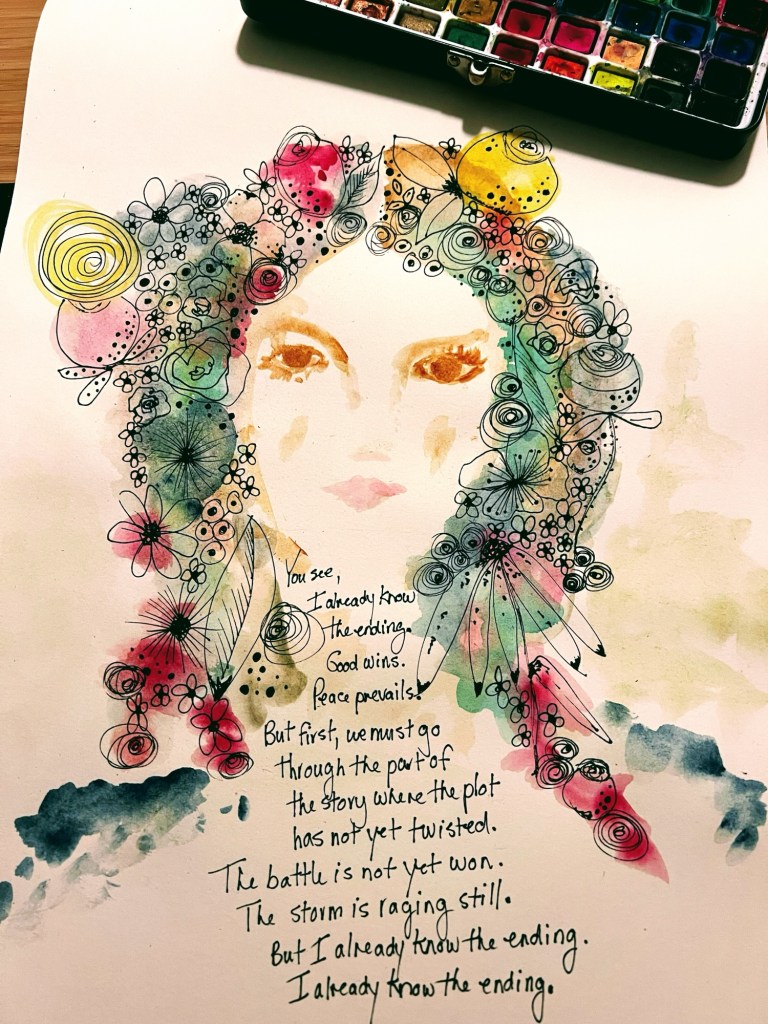 You see,
I already know
the ending.
Good wins.
Peace prevails.
But first, we must go
through the part of
the story where the plot
has not yet twisted.
The battle is not yet won.
The storm is raging still.
But I already know the ending.
I already know the ending.